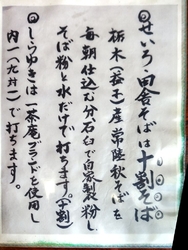 ◎せいろ、田舎そばは十割そば
栃木(益子)産常陸秋そばを
毎朝仕込む分石臼で自家製粉し
そば粉と水だけで打ちます。(十割)
◎しらゆきは一茶庵ブランドを使用し
内一(九対一)で打ちます。